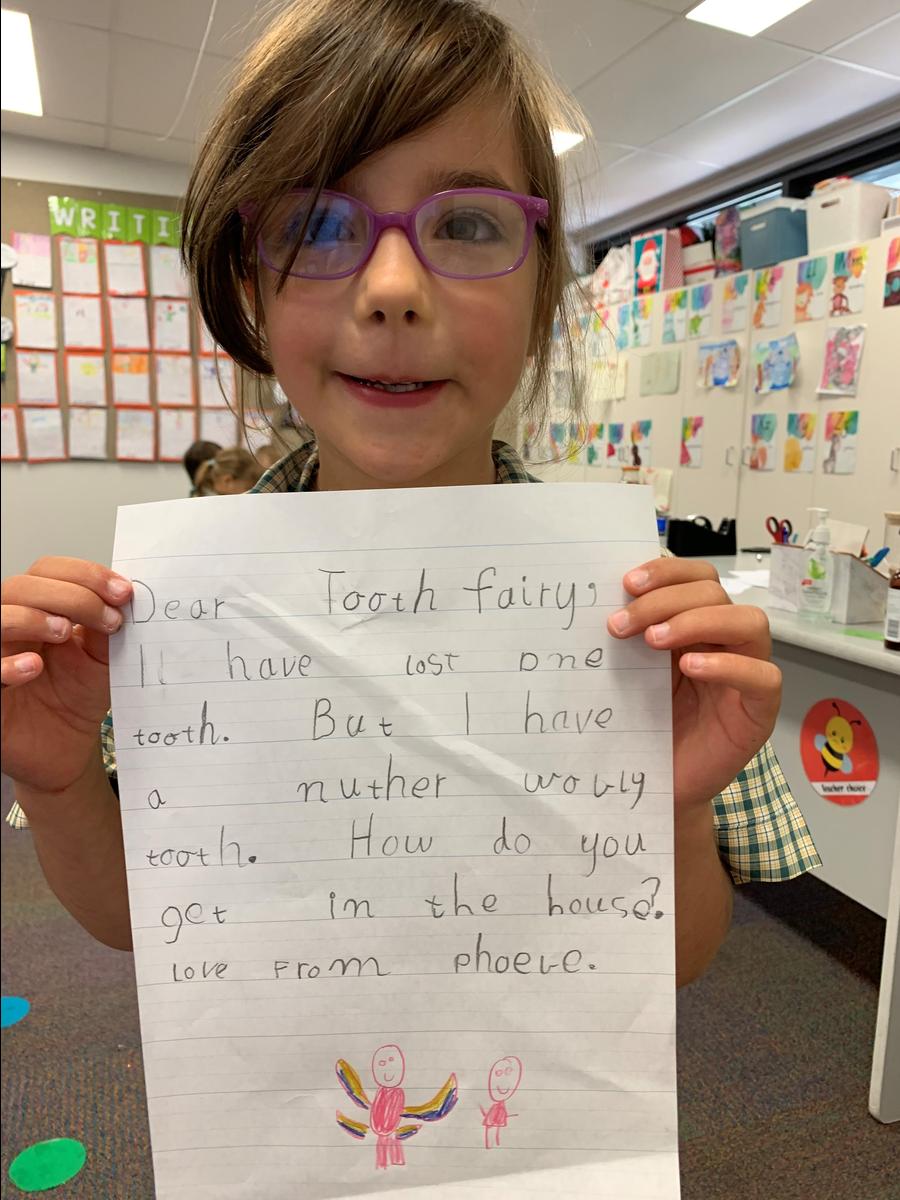 WRITI
Dear Tooth fairy,
I have lost one
tooth. But I have
a nuther wobly
tooth. How do you
get in the house?
Love From phoebe.
teacher choice